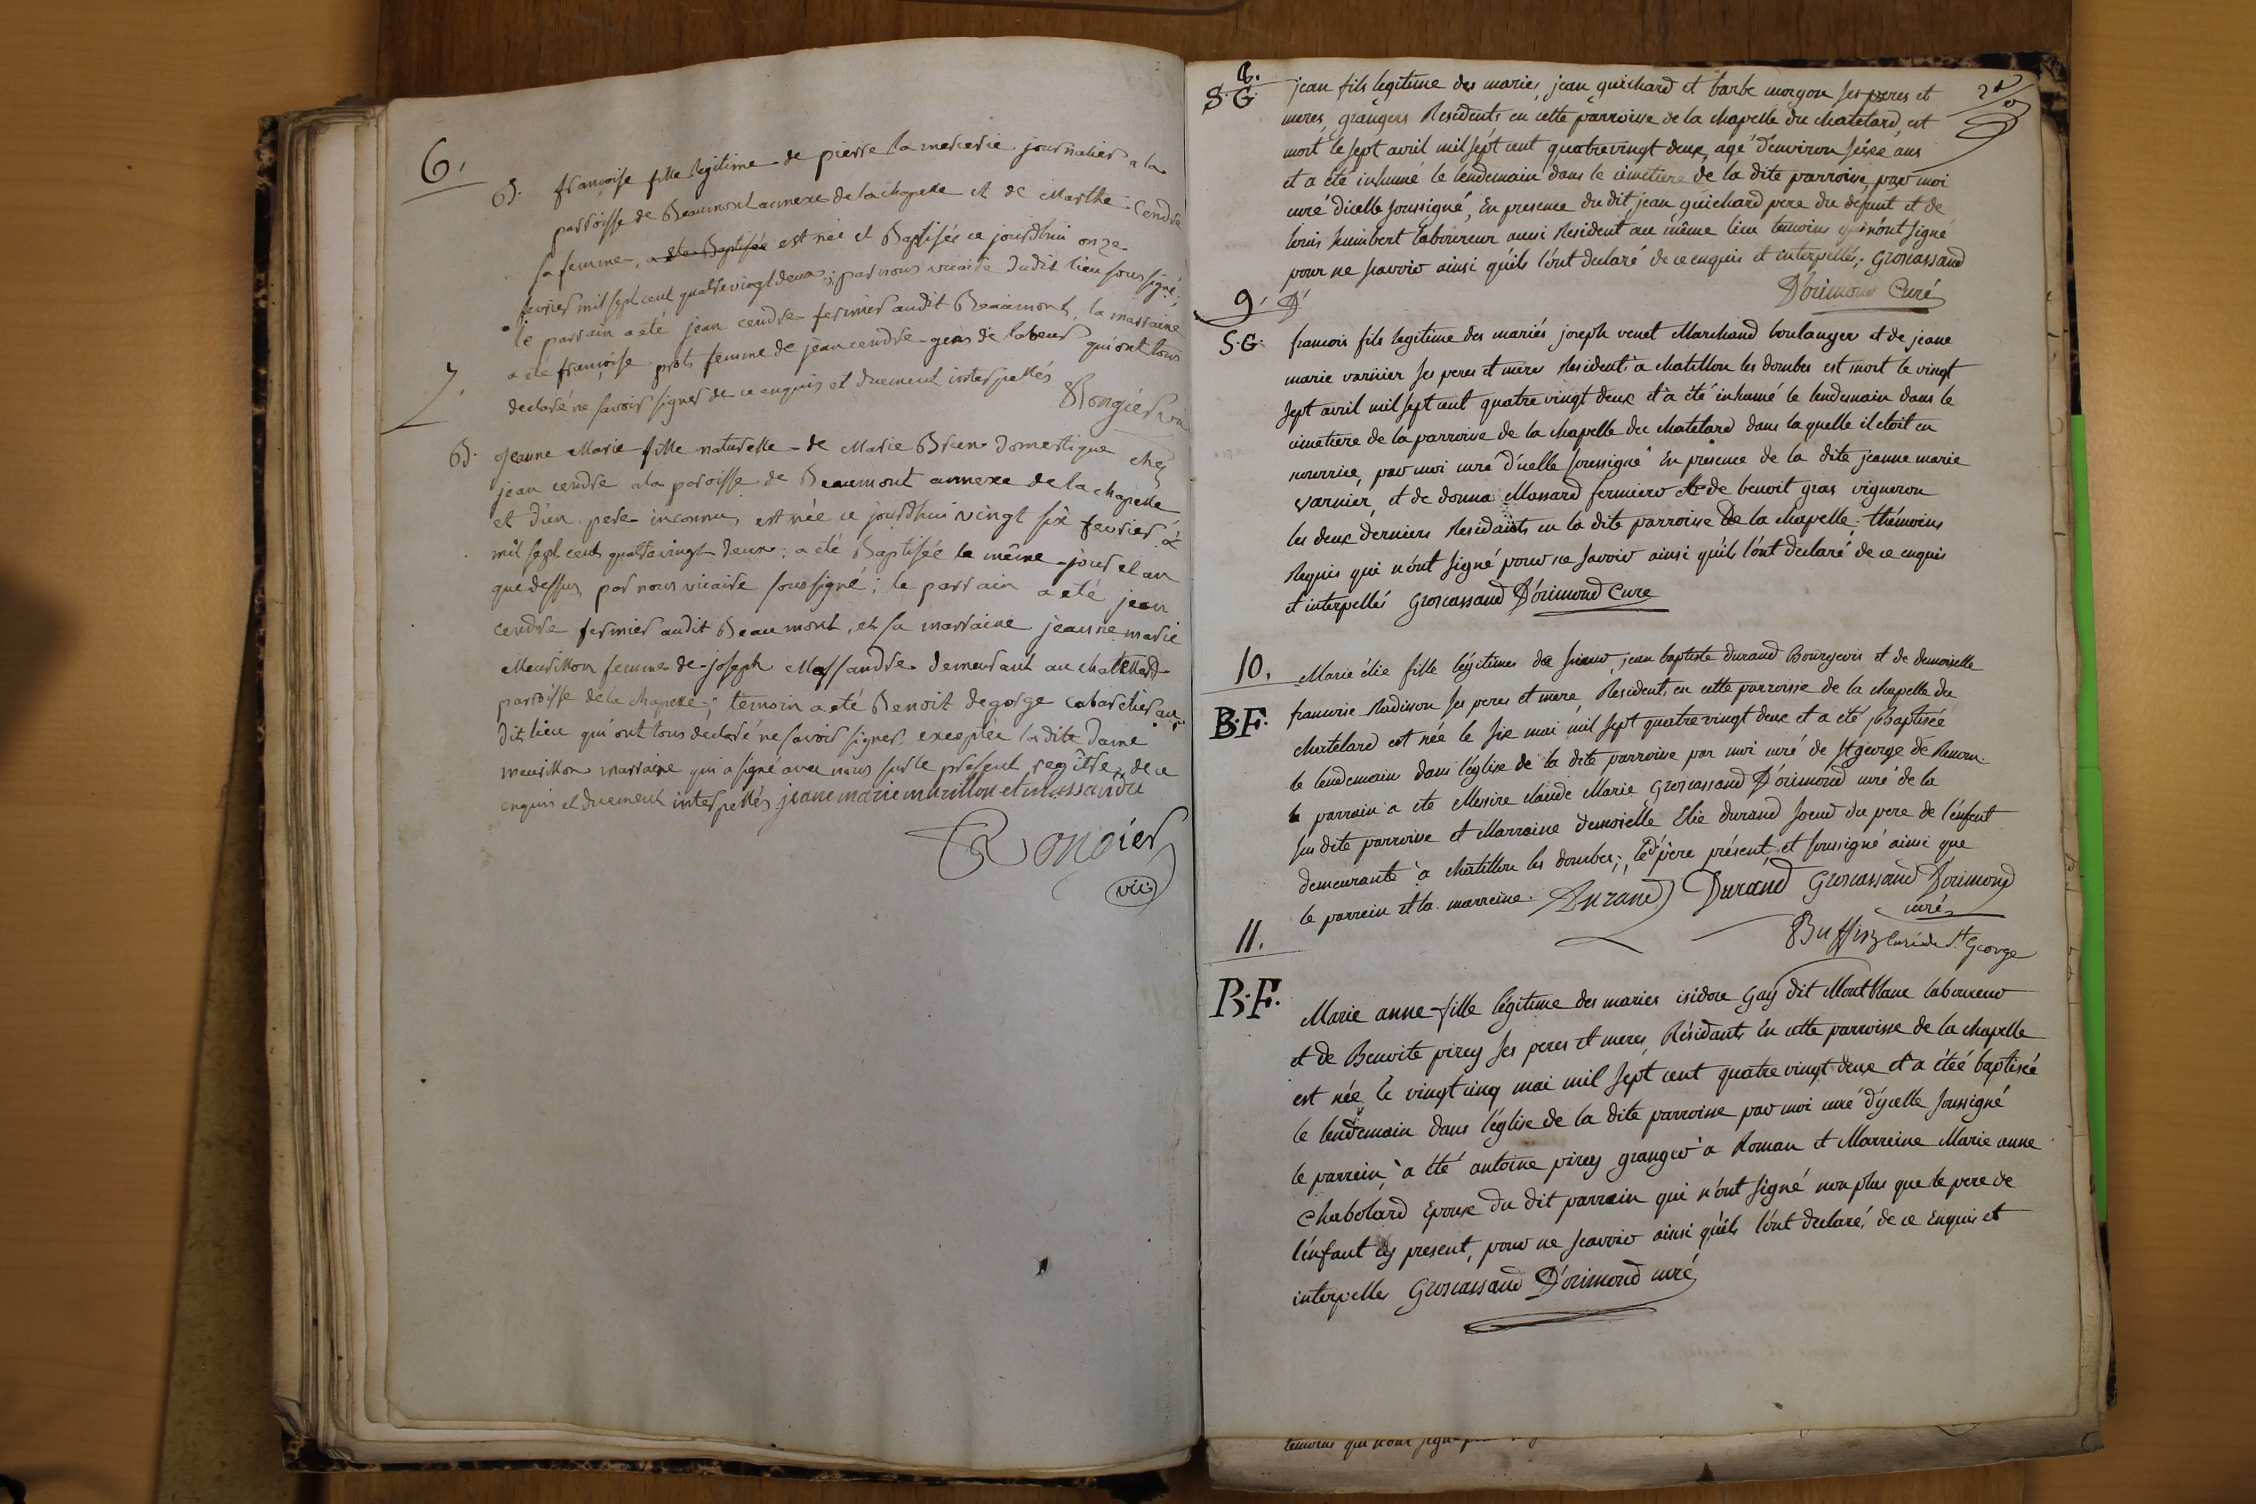 6.
B. françoise fille legitime de pierre la mererie journalier a la
parroisse de Beaumont annexe de la chapelle et de Marthe Cendre
sa femme, a ete Baptisée est née et Baptisée ce jourdhui onze
fevrier mil sept cent quatre vingt deux; par nous vicaire dudit lieu soussigné;
le parrain a eté jean cendre fermier audit Beaumont, la marraine
a ete françoise prost femme de jean cendre gens de labeur qui ont tous
declaré ne savoir signer de ce enquis et duement interpellés Rongier
7.
B. Jeanne Marie fille naturelle de Marie Brun domestique chez
jean cendre a la paroisse de Beaumont annexe de la chapelle
et d'un pere inconnu, est née ce jourdhui vingt six fevrier
mil sept cent quatrevingt deux; a eté Baptisée le même jour et an
que dessus par nous vicaire soussigné; le parrain a eté jean
cendre fermier audit Beaumont, et sa marraine jeanne marie
Meurillon femme de joseph Massandre demeurant au chatellard
parroisse de la chapelle; temoin a eté Benoit degorge cabaretier au
dit lieu qui ont tous declaré ne savoir signer, exceptée la dite dame
meurillon marraine qui a signé avec nous sur le present registre, de ce
enquis et duement interpellés jeane marie murillon et massandre
Rongier
vic
8.
S.G. jean fils legitime des mariés jean guichard et barbe morgon ses peres et
meres, grangers Residents en cette parroisse de la chapelle du chatelard, est
mort le sept avril mil sept cent quatre vingt deux, agé d'environ seize ans
et a été inhumé le lendemain dans le cimetiere de la dite parroisse, par moi
curé dicelle soussigné, En presence du dit jean guichard pere du defunt et de
louis humbert laboureur aussi Resident au même lieu temoins qui n'ont signé
pour ne scavoir ainsi qu'ils l'ont declaré de ce enquis et interpellés; Groscassand
D'orimond Curé
9.
S.G. francois fils legitime des mariés joseph venet Marchand boulanger et de jeane
marie varnier ses peres et meres Residents a chatillon les dombes est mort le vingt
sept avril mil sept cent quatre vingt deux et a été inhumé le lendemain dans le
cimetiere de la parroisse de la chapelle du chatelard dans la quelle il etoit en
nourrice, par moi curé d'icelle soussigné En presence de la dite jeanne marie
varnier, et de donna Massard fermiere et de benoit gras vigneron
les deux derniers Residants en la dite parroisse De la chapelle; thémoins
Requis qui n'ont signé pour ne savoir ainsi qu'ils l'ont declaré de ce enquis
et interpellés Groscassand D'orimond Cure
10. Marie élie fille légitime de sieur jean baptiste durand Bourgeois et de demoiselle
B.F. francoise Rudisson ses peres et mere, Residents en cette parroisse de la chapelle du
chatelard est née le six mai mil sept quatre vingt deux et a été Baptisée
le lendemain dans l'église de la dite parroisse par moi curé de st george de Renom.
le parrain a été Messire claude Marie Groscassand D'orimond curé de la
sus dite parroisse et Marraine demoiselle Elie durand soeur du pere de l'enfant
demeurante a chatillon les dombes; le d. pere présent et soussigné ainsi que
le parrein et la marreine. Durand Durand Groscassand Dorimond
curé
Buffin Curé de St. George
11.
B.F. Marie anne fille légitime des mariés isidore Gay dit Montblanc laboureur
et de Benoite pirey ses peres et meres, Résidants En cette parroisse de la chapelle
est née le vingt cinq mai mil sept cent quatre vingt deux et a étée baptisée
le lendemain dans l'église de la dite parroisse par moi curé d'ycelle soussigné
le parrein a été antoine pirey granger a Roman et Marreine Marie anne
Chabolard Epouse du dit parrain qui n'ont signé non plus que le pere de
l'enfant cy present, pour ne scavoir ainsi qu'ils l'ont declaré, de ce Enquis et
interpellés Groscassand D'orimond curé
temoins qui n'ont signé